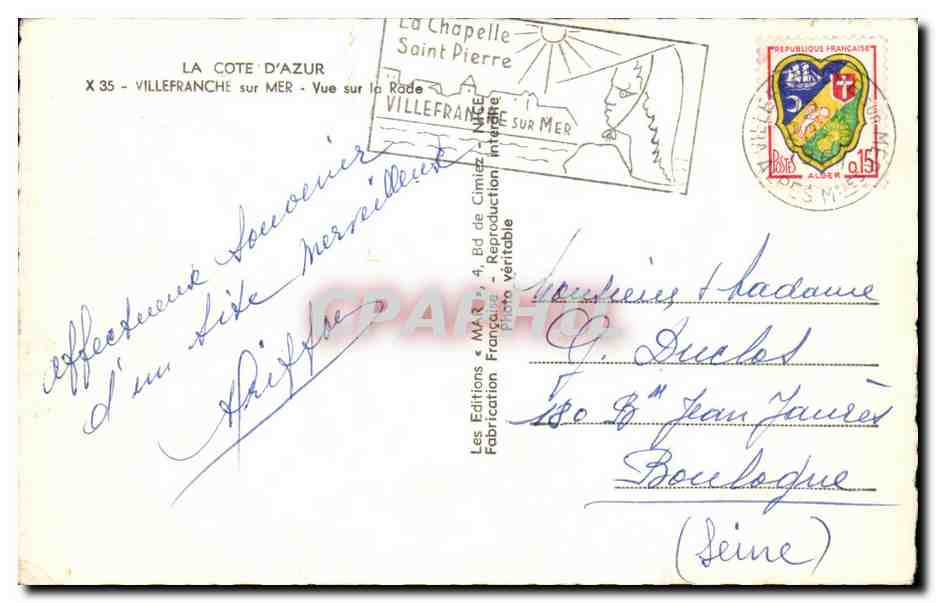 LA COTE D'AZUR
X 35 - VILLEFRANCHE sur MER - Vue sur la Rade
La Chapelle
Saint Pierre
VILLEFRANCHE SUR MER
REPUBLIQUE FRANÇAISE
POSTES
0.15
ALGER
affectueux Souvenir
d'un site merveilleux
Les Editions « MAR », 4, Bd de Cimiez - NICE
Fabrication Française - Reproduction interdite
Photo véritable
CPARAMA
Monsieur + Madame
G. Duclos
180 Bd Jean Jaurès
Boulogne
(Seine)